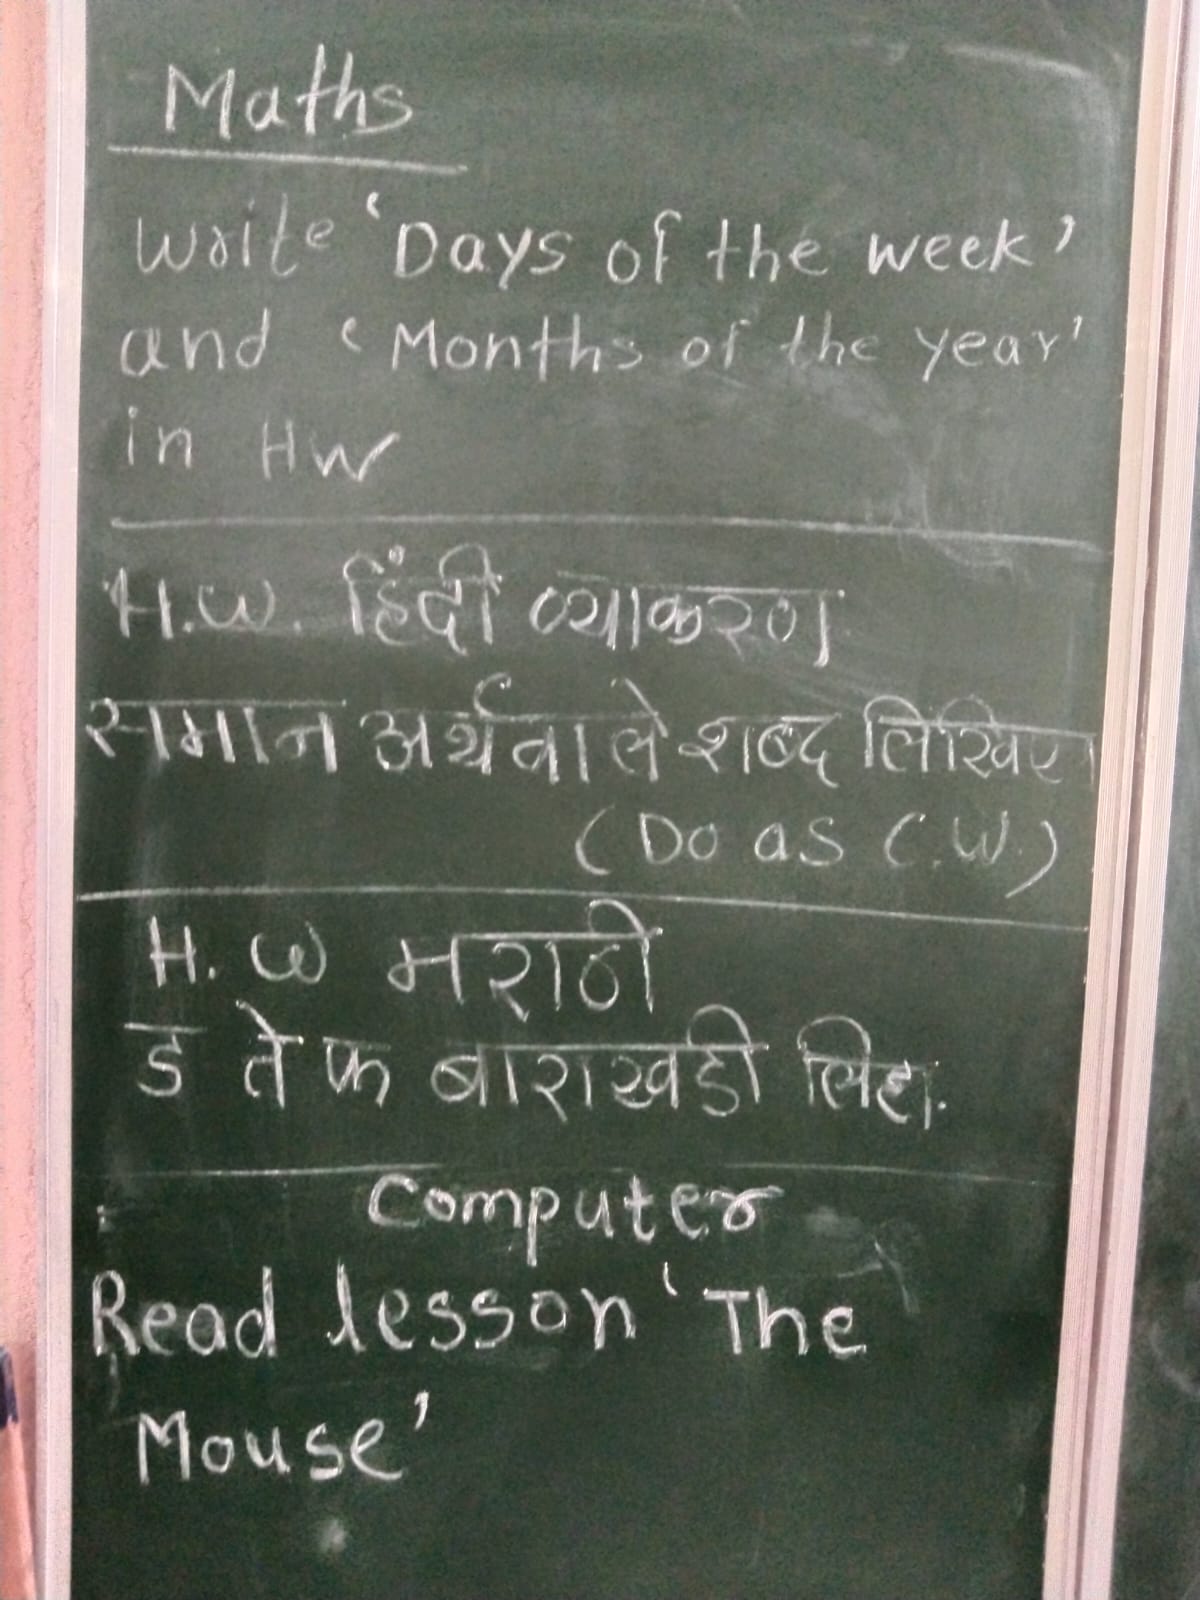 Maths
Write 'Days of the week'
and 'Months of the year'
in HW
H.W. हिंदी व्याकरण
समान अर्थवाले शब्द लिखिए।
(Do as C.W.)
H.W मराठी
ड ते फ बाराखडी लिहा.
Computer
Read lesson 'The
Mouse'